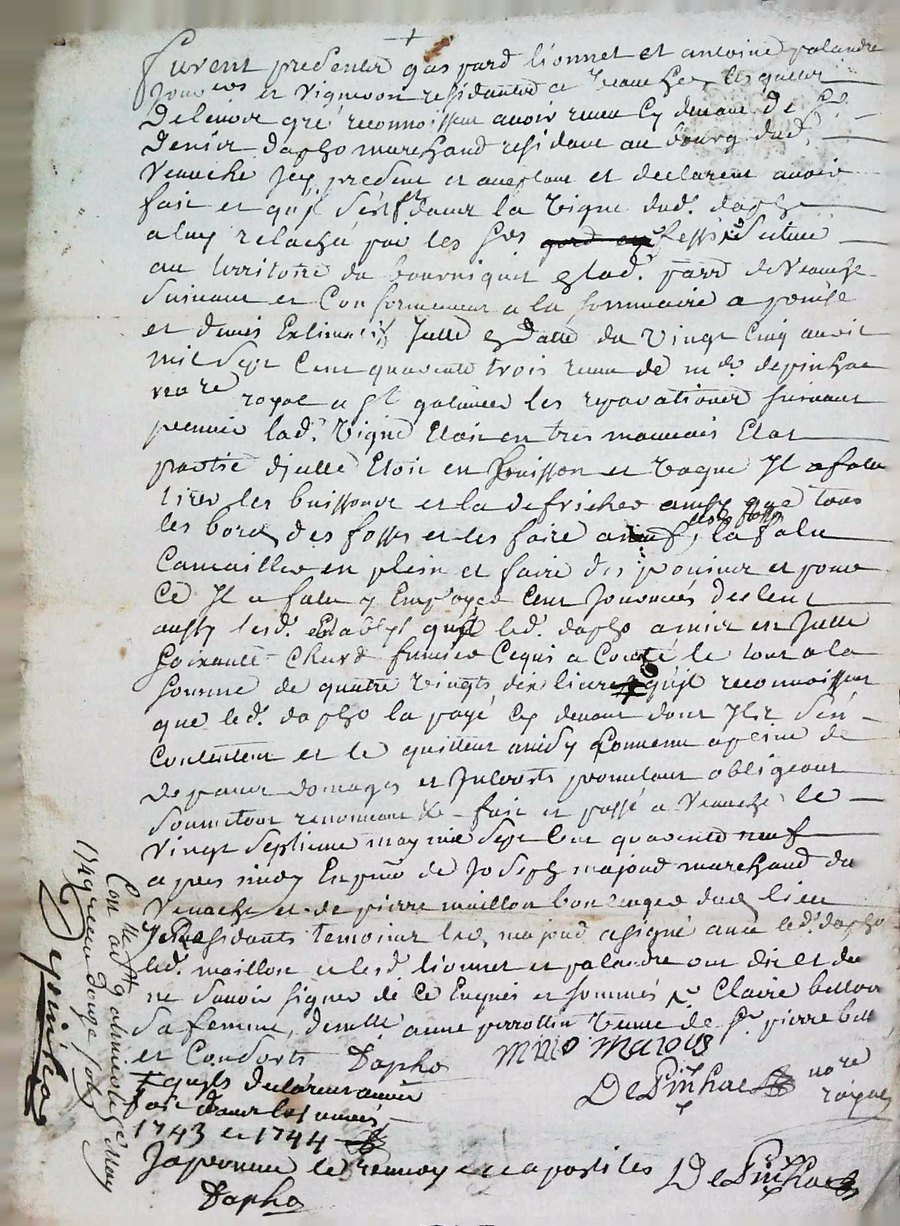 furent presents gaspard lionnet et antoine palandre
et vigneron residants a veauche lesquels
De leur gré reconnoissent avoir receu cy devant de Sr
Denis dapho marchand residant au bourg dud.
Veauche jcy present et aceptant et declarent avoir
fait et qu'jl dans la vigne dud. dapho
a luy relaché par les
au territoire du bourniquet et lad. parr. de veauche
Suivant et Conformement a la sommaire aprise
et devis Estimatif jelle en datte du vingt Cinq avril
mil Sept Cent quarante trois receu de me. depinhac
no.re royal a St galmier les reparations suivant
premier lad. vigne Etoit en tres mauvais Etat
partie d'jcelle Etoit en buisson et vague Jl a falu
tirer les buissons et la defricher aussy que tous
les bords des fosses et les faire a neuf, la falu
en plein et faire des et pour
Ce Jl a falu y Employer Cent journées
aussy lesd. qu'jl led. dapho a mis en jcelle
Soixante Chard fumier Ce qui a Couté le tout a la
somme de quatre vingts dix livres qu'jls reconnoissent
que led. dapho la payé cy devant dont Jls s'en
Contentent et le quittent ainsy Convenu a peine de
depens domages et Jnterests promettant obligeant
Soumettant renonceant &c fait et passé a Veauche le
Vingt Septieme may mil Sept Cent quarante neuf
apres midy En pnce de Joseph majoud marchand du
Veauche et de pierre maillon boulanger dud. lieu
Residants temoins led. majoud a signé avec led. dapho
led. maillon et lesd. lionnet et palandre ont dit et de
ne savoir signer de ce Enquis et sommés Claire
Sa femme, demlle anne perrottin veuve de Sr. pierre
et Consorts Dapho
DePinhac no.re
royal
qu'jls declarent avoir
fait dans les années
1743 et 1744
Japrouve le renvoy et apostiles DePinhac
Dapho
Con. a St galmier le may
1749 receu douze sols
Depinhac